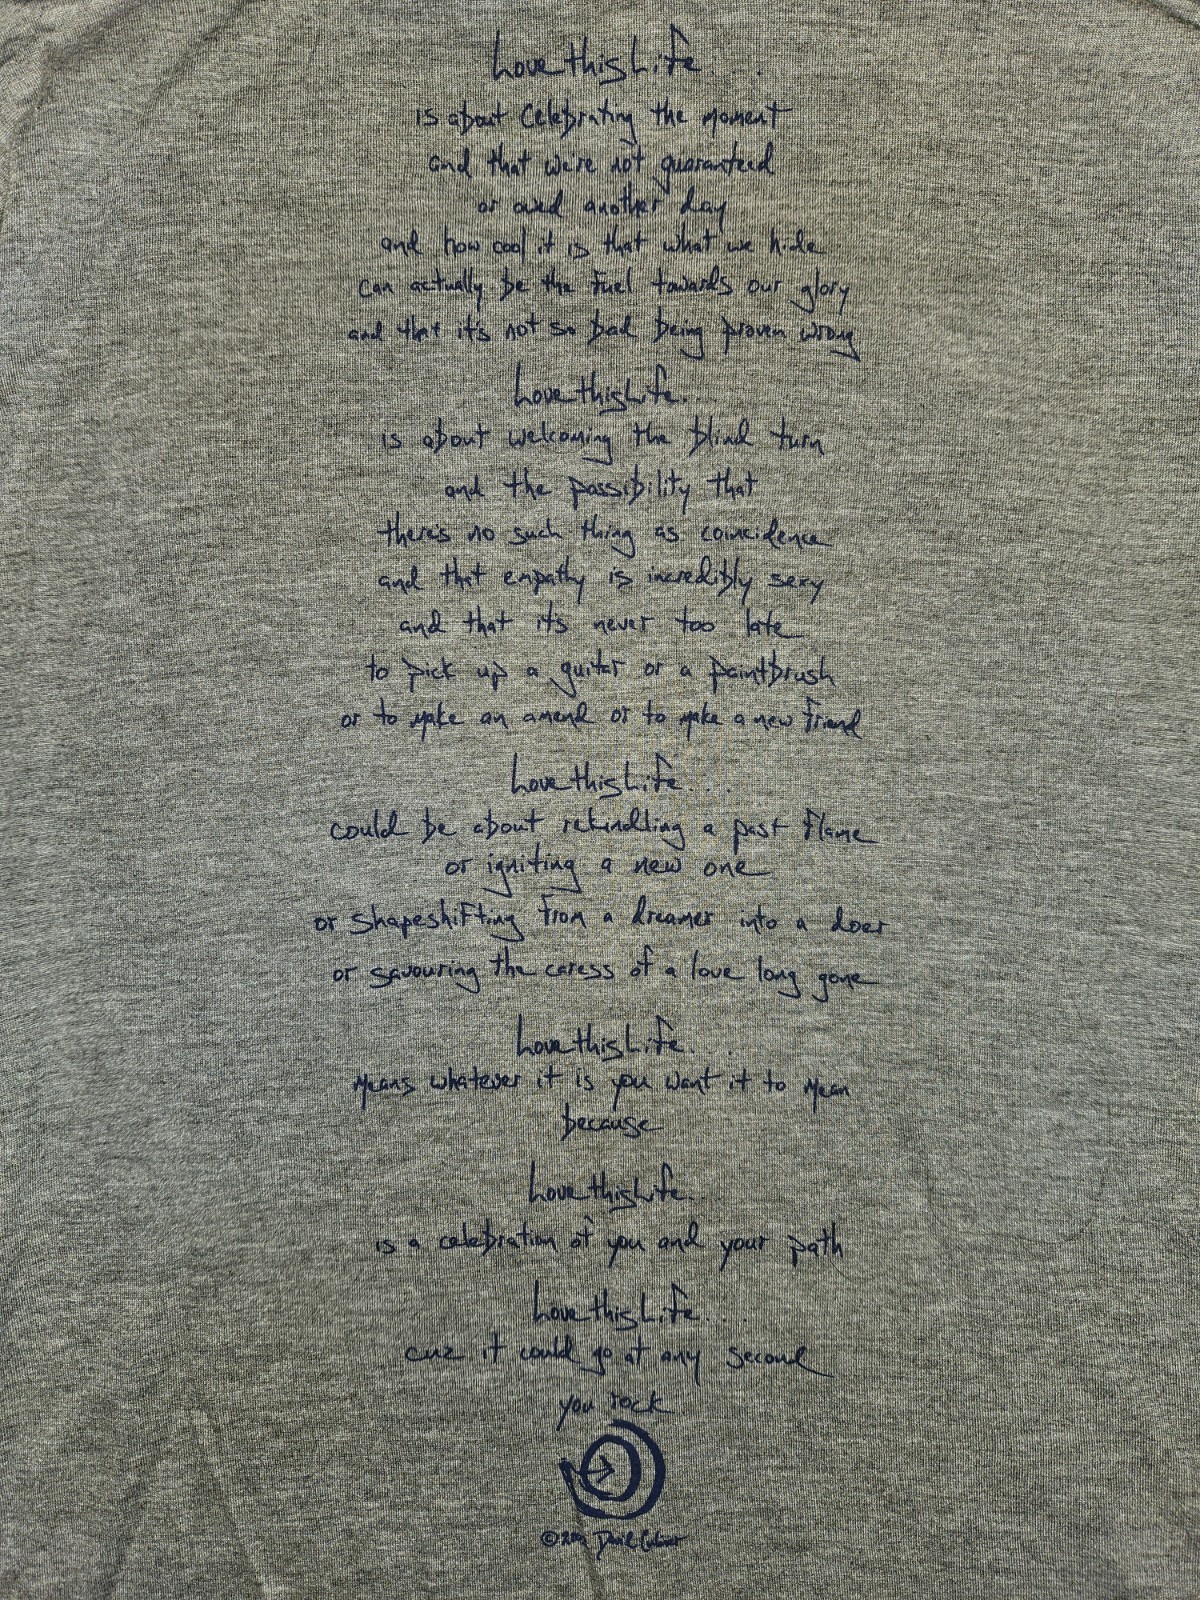 LoveThisLife...
is about celebrating the moment
and that we're not guaranteed
or owed another day
and how cool it is that what we hide
can actually be the fuel towards our glory
and that it's not so bad being proven wrong
LoveThisLife...
is about welcoming the blind turn
and the possibility that
there's no such thing as coincidence
and that empathy is incredibly sexy
and that it's never too late
to pick up a guitar or a paintbrush
or to make an amend or to make a new friend
LoveThisLife...
could be about rekindling a past flame
or igniting a new one
or shapeshifting from a dreamer into a doer
or savouring the caress of a love long gone
LoveThisLife...
means whatever it is you want it to mean
because
LoveThisLife...
is a celebration of you and your path
LoveThisLife...
cuz it could go at any second
you rock
©